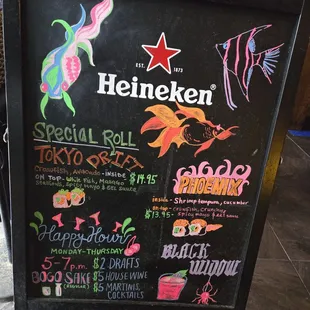 EST. 1873
Heineken
Special Roll
TOKYO DRIFT
Crawfish, Avocado - inside
ON TOP - White Fish, Masago
Scallions, Spicy mayo & eel sauce
$14.95
PHOENIX
inside -
Shrimp tempura, cucumber
on top -
Crawfish, Crunchy,
Spicy mayo & eel sauce
$13.95
Happy Hour
MONDAY-THURSDAY
5-7p.m.
BOGO SAKE
(REGULAR)
$2 DRAFTS
$5 HOUSE WINE
$5 MARTINIS,
COCKTAILS
BLACK
WIDOW